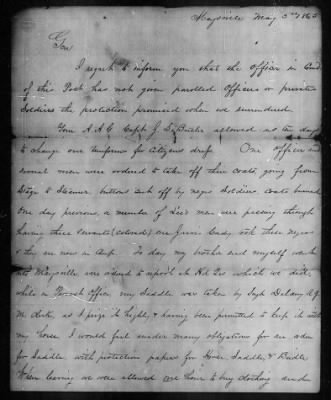 Maysville May 3rd 1865
Gen
I regret to inform you that the officer in Comd
of this Post has not given parolled Officers or private
Soldiers the protection promised when we surrendered.
Your A A G Capt. J. allowed us ten days
to change our Uniform for Citizens dress. One officer and
several men were ordered to take off their coats, going from
Stage to Steamer, buttons cut off by negro Soldiers, coats burned
One day previous, a number of Lee's men were passing through
having three servants (colored) one Jennie Lady, took these negroes
& they are now in Camp. To day my brother and myself went
into Maysville, were asked to report at Hd Qrs which we did,
while in Provost Office, my Saddle was taken by Sergt Delany A.G.
M. clerk, as I prize it highly, & having been permitted to keep it with
my horse I would feel under many obligations for an order
for Saddle with protection papers for Horse Saddle, & Bridle
When leaving we were allowed one hour to buy clothing and